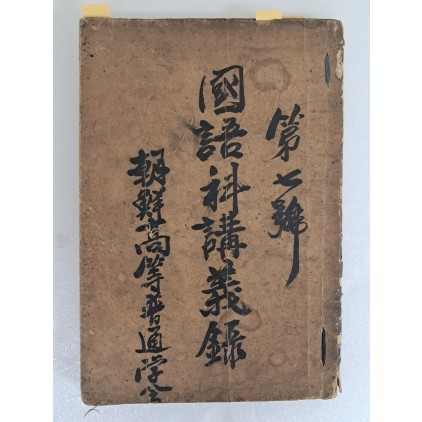 第七號
國語科講義録
朝鮮高等普通学会